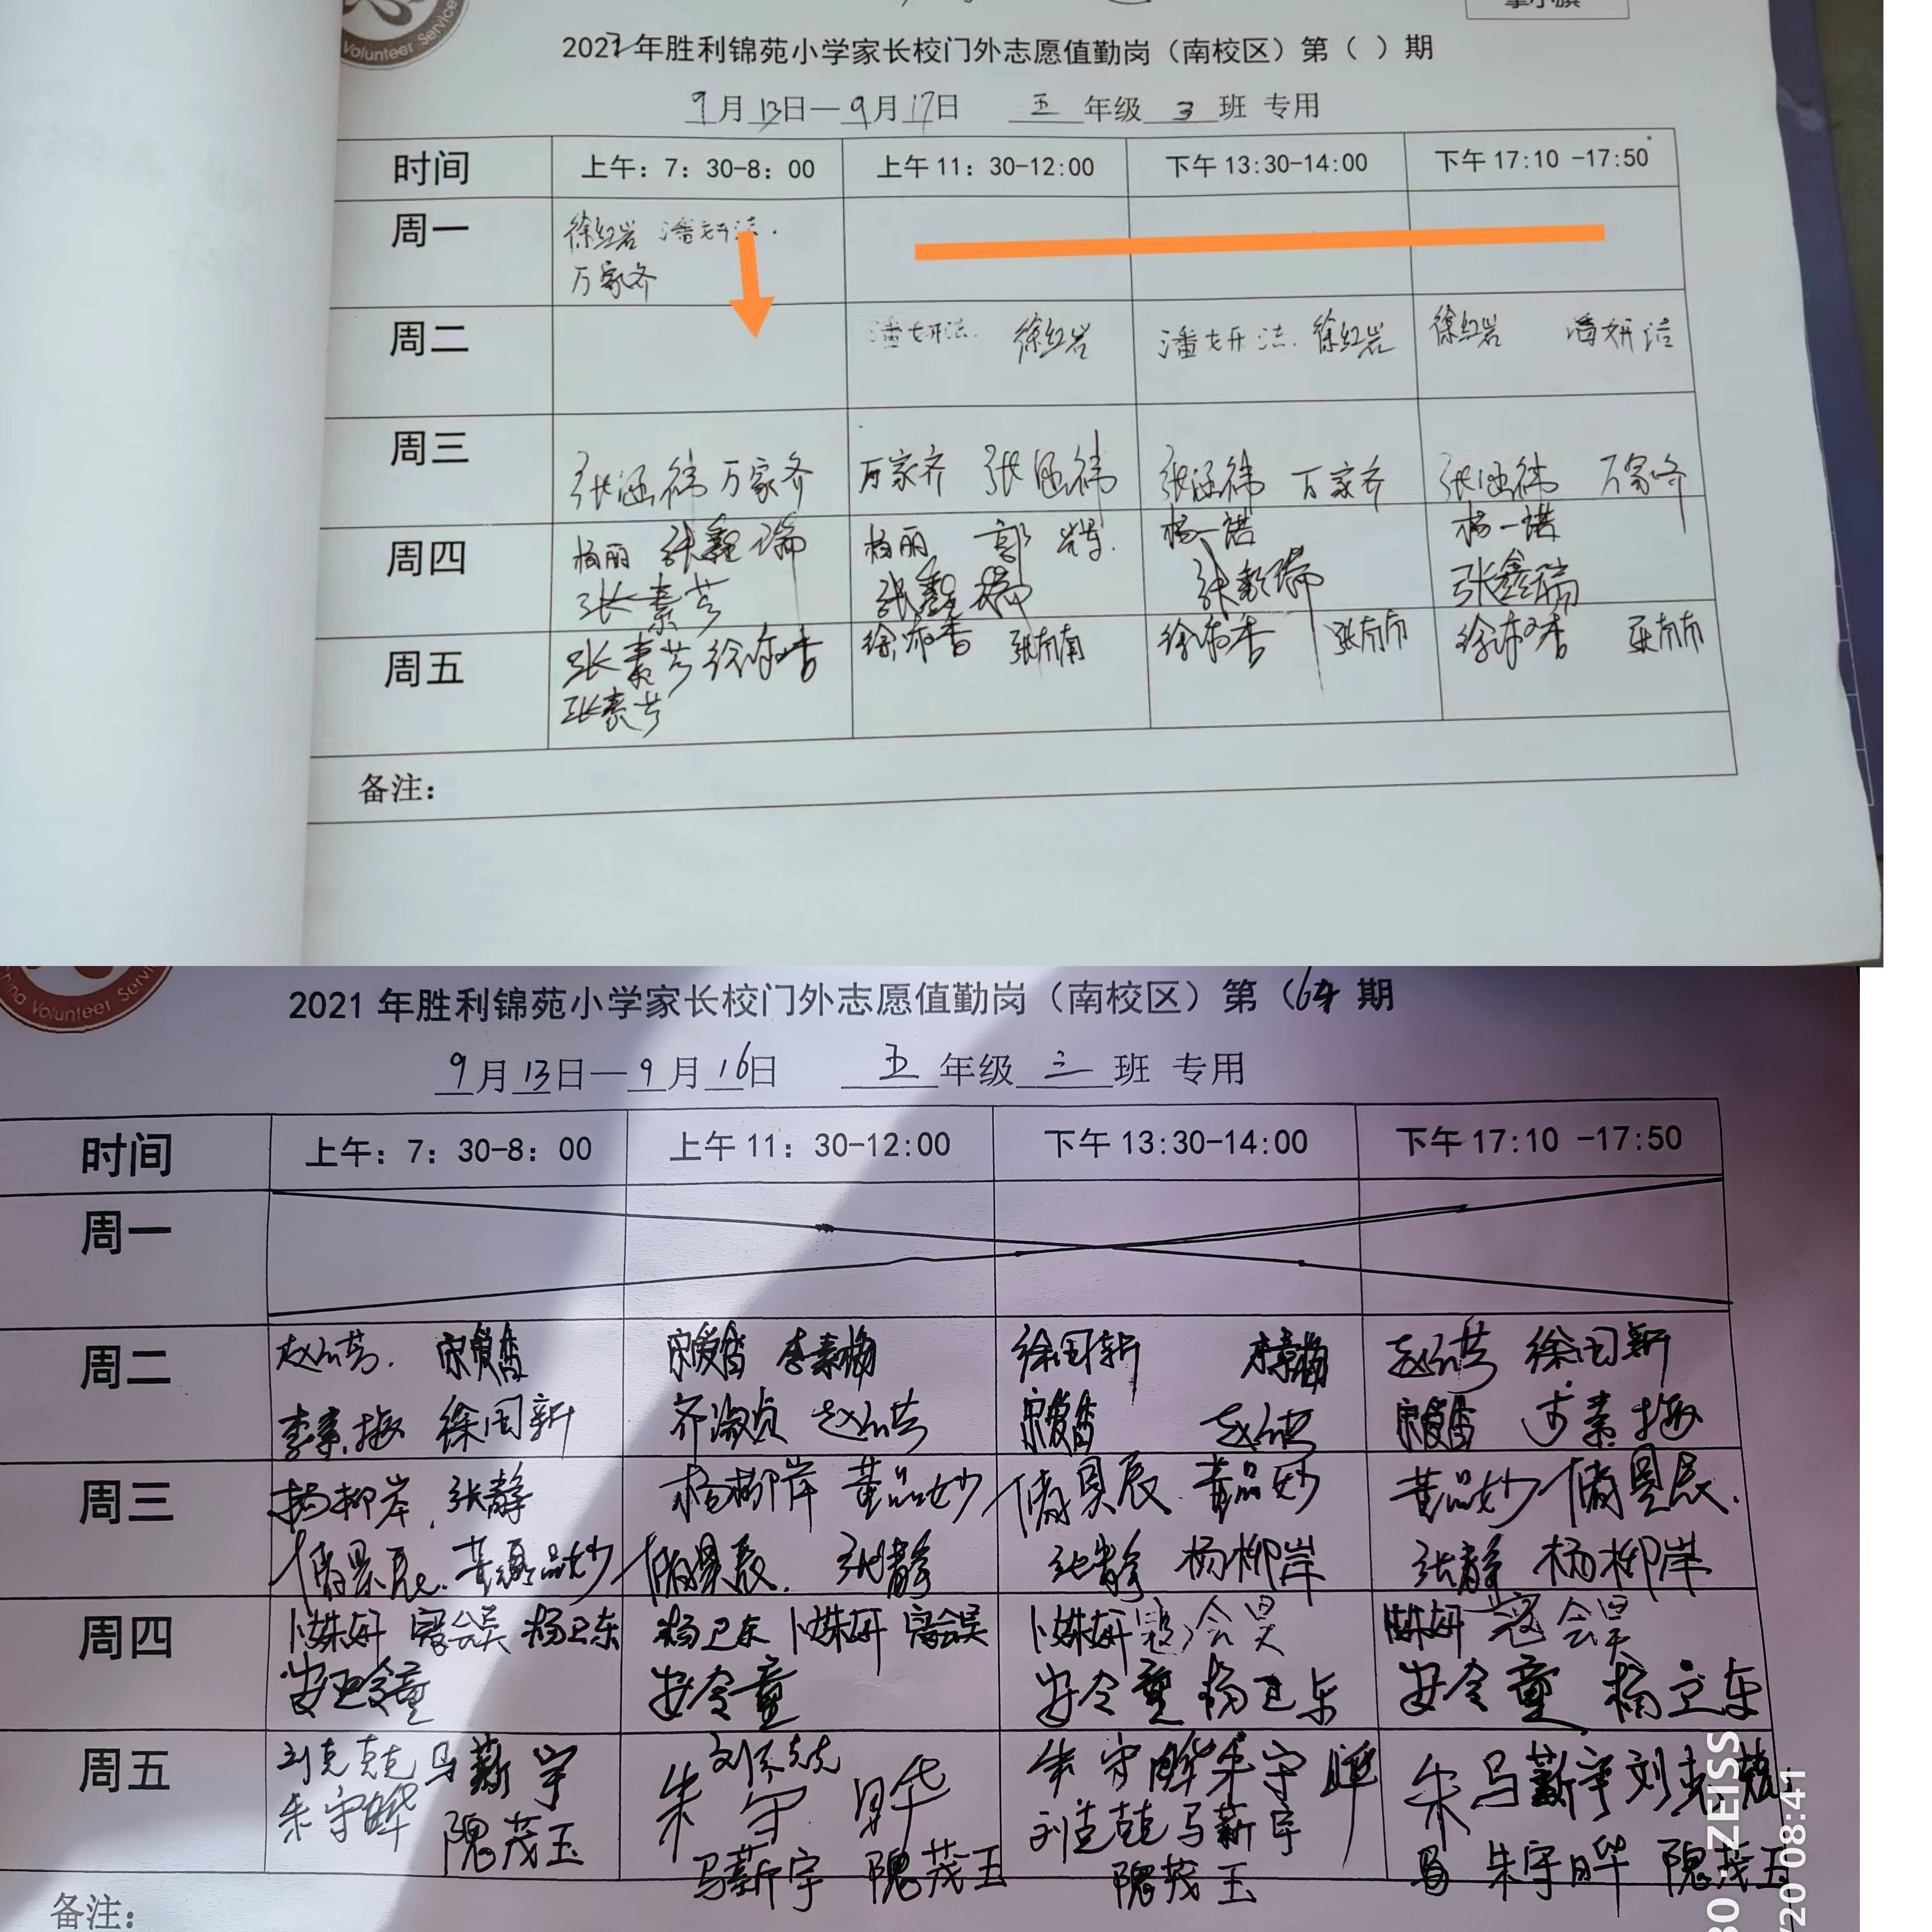 Volunteer Service
2021年胜利锦苑小学家长校门外志愿值勤岗（南校区）第（ ）期
9月13日—9月17日 五年级 3 班 专用
时间 上午：7：30-8：00 上午11：30-12:00 下午13:30-14:00 下午17:10 -17:50
周一 徐红岩 潘妍洁.
万家齐
周二 潘妍洁. 徐红岩 潘妍洁. 徐红岩 徐红岩 潘妍洁
周三 张涵祎 万家齐 万家齐 张涵祎 张涵祎 万家齐 张涵祎 万家齐
周四 杨丽 张鑫瑞 杨丽 郭 杨一诺 杨一诺
张素芳 张鑫瑞 张鑫瑞 张鑫瑞
周五 张素芳 徐 香 徐 香 张楠楠 徐 香 张楠楠 徐 香 张楠楠
张素芳
备注：
China Volunteer Servi
2021年胜利锦苑小学家长校门外志愿值勤岗（南校区）第（6 期
9月13日—9月16日 五年级 三 班 专用
时间 上午：7：30-8：00 上午11：30-12:00 下午13:30-14:00 下午17:10 -17:50
周一
周二 宋爱香 宋爱香 李素梅 徐国新 李素梅 徐国新
李素梅 徐国新 齐淑贞 宋爱香 宋爱香 李素梅
周三 杨柳岸 张静 杨柳岸 董品妙 董品妙 董品妙
董品妙 张静 张静 杨柳岸 张静 杨柳岸
周四 卜姝妍 寇会昊 杨卫东 杨卫东 卜姝妍 寇会昊 卜姝妍 寇会昊 卜姝妍 寇会昊
安令童 安令童 安令童 杨卫东 安令童 杨卫东
周五 刘克兢 马薪宇 刘克兢 朱守晔 朱守晔 朱 马薪宇 刘克兢
朱守晔 朱守晔 刘克兢 马薪宇
隗茂玉 马薪宇 隗茂玉 隗茂玉 马 朱守晔 隗茂玉
备注：
30 · ZEISS
/20 08:41